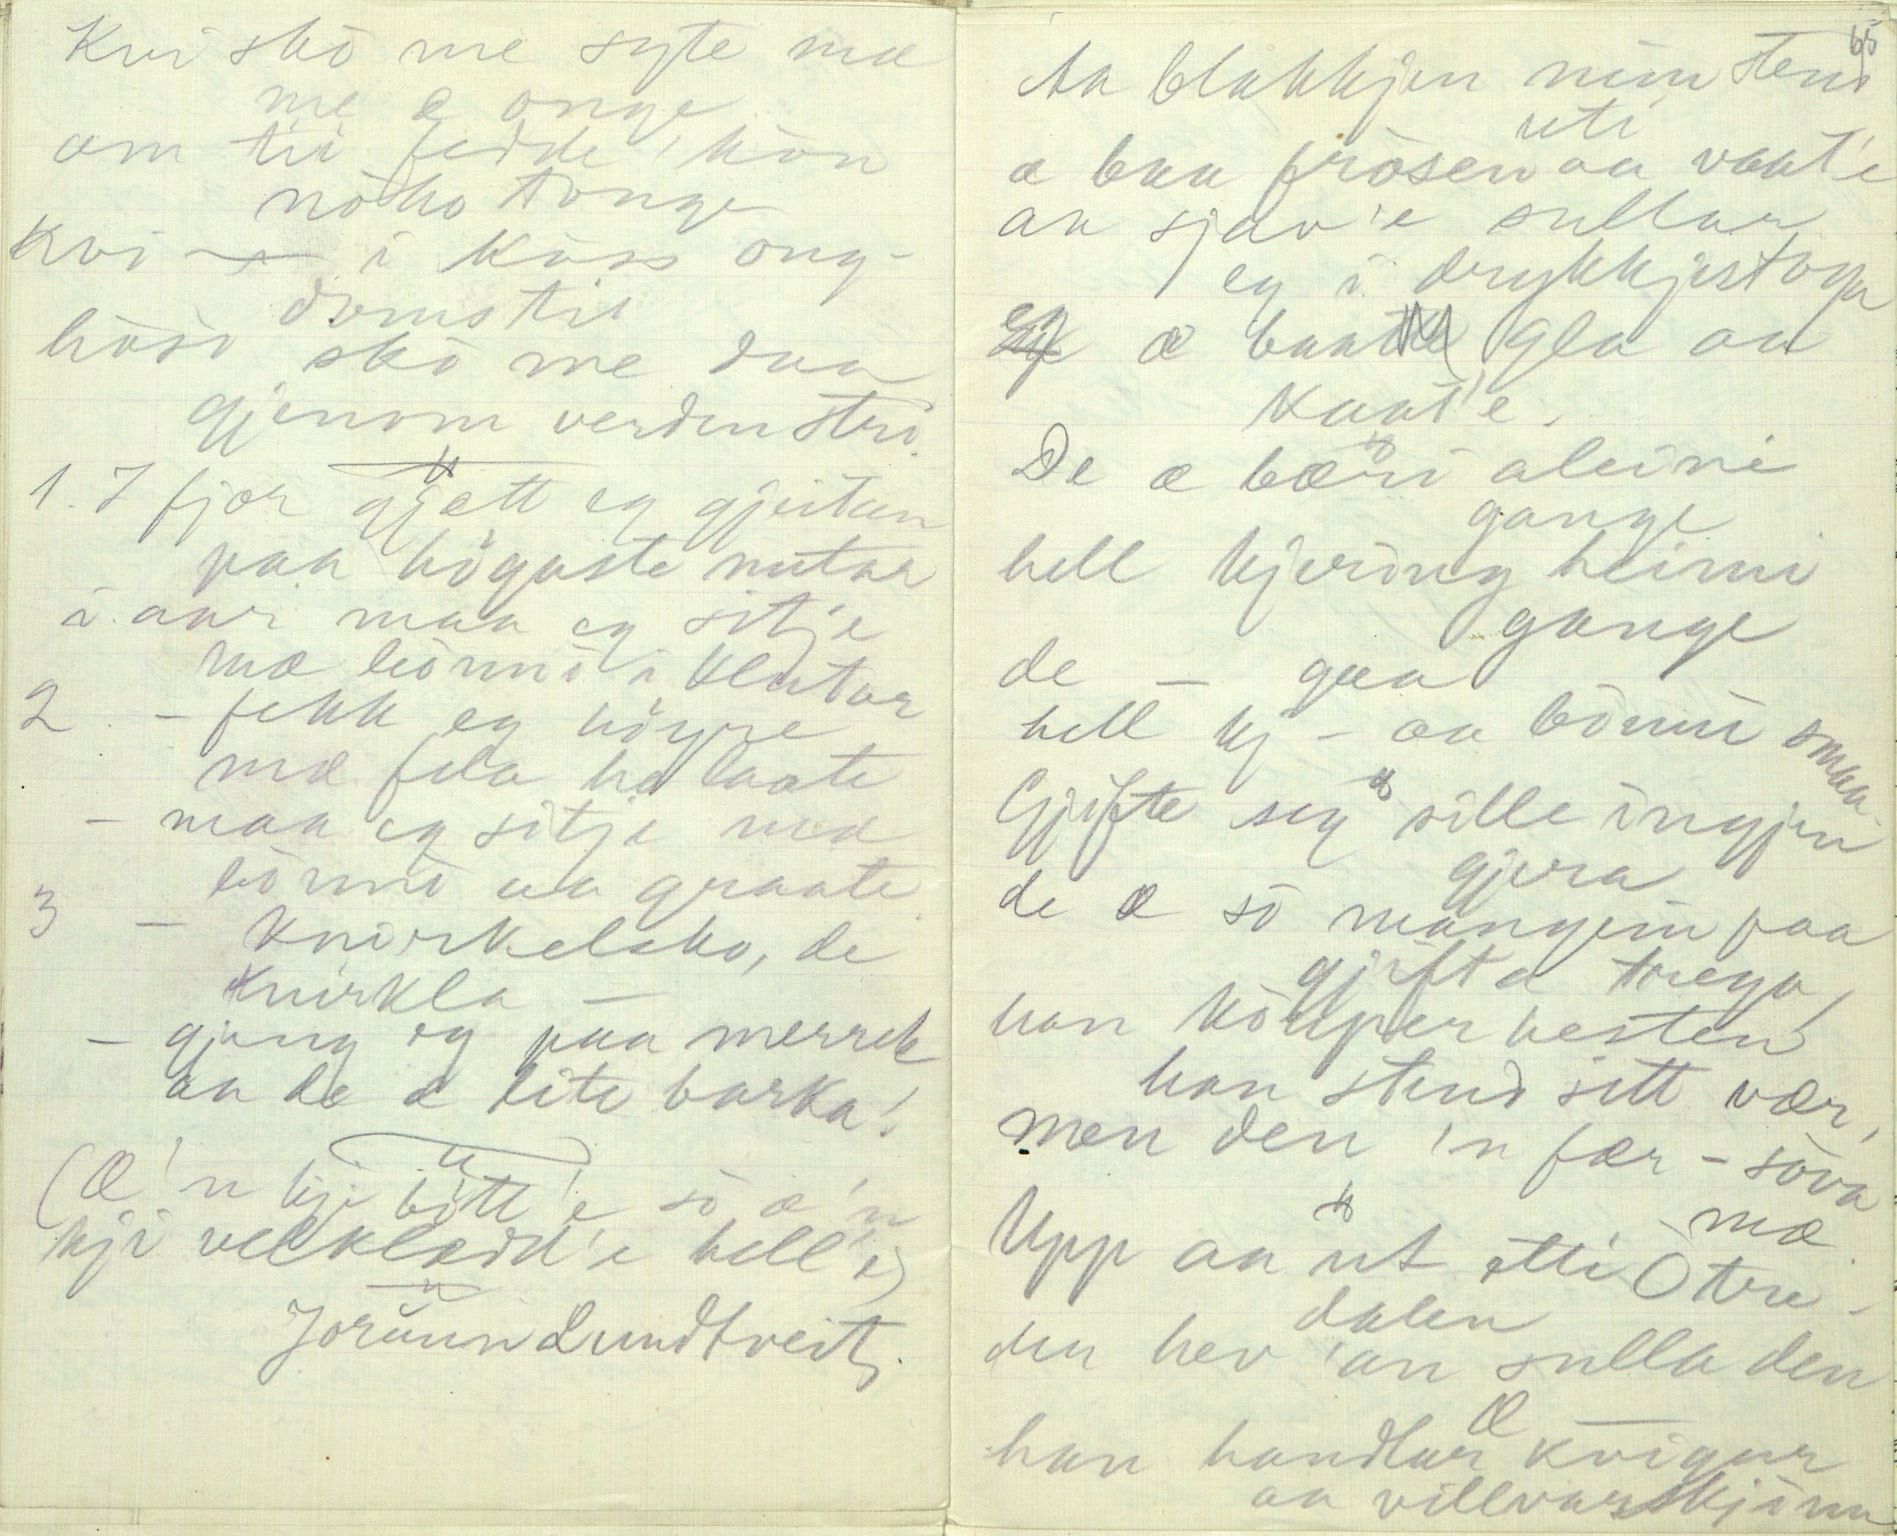 Kvi skò me syte mæ
me æ onge
om tii fedde 'kòn
nòko tonge
Kvi — i kòss ong-
domstii
hòss skò me daa
gjenom verden stri.
1. I fjor gjætt eg gjeitan
paa högaste nutar
i aar maa eg sitje
mæ bönnò i klutar
2 - fekk eg höyre
mæ fela ho laate
- maa eg sitje mæ
bönnò aa graate.
3 - knirkelsko, de
knirkla —
- gjeng eg paa
aa de æ lite barka!
(Æ'n kji bitt'e so æ'n
kji velklædd'e hell'e)
Jorunn Lundtveit.
65
Aa blakkjen min stend
uti
æ baa fròsen aa vaat'e
aa sjav'e sullar
eg i drykkjestoga
eg æ baa gla aa
kaat'e.
De æ bæri aleine
gange
hell kjering heimi
gange
de — gaa
hell kj - aa bönni smaa.
Gjifte seg sille ingjen
gjera
de æ sò mangein paa
gjifta trega,
han köyper hesten
han stend sitt vær,
men den 'n fær - sòva
mæ.
Upp aa ut etti Òtre-
dalen
den hev 'an sulla den
Æ —
han handlar kvigur
aa villvarskjinn